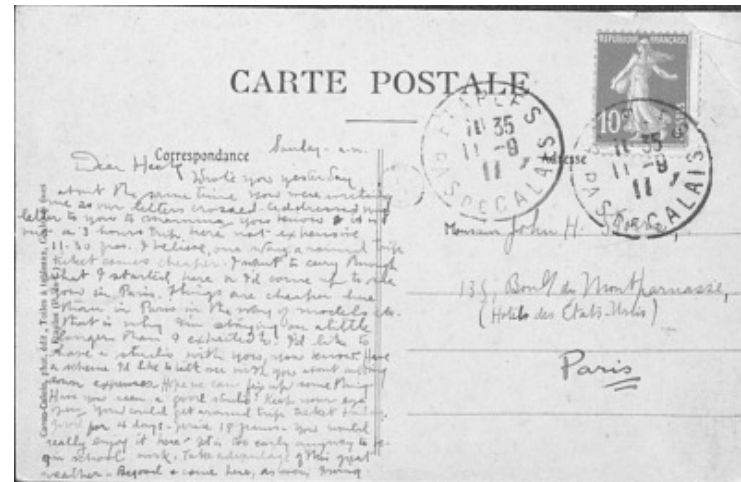 CARTE POSTALE
REPUBLIQUE FRANÇAISE
10
POSTES
ETAPLES
11 35
11 - 9
11
PAS DE CALAIS
11 35
11 - 9
11
PAS DE CALAIS
Correspondance
Adresse
Sunday - a.m.
Dear
Wrote you yesterday
about the same time you were writing
me as our letters crossed. Addressed my
letter to you to you know it is
a 3 hours trip here not expensive
11-30 frs. I believe, one way, a round trip
ticket comes cheaper. I want to carry through
what I started here or I'd come up to see
you in Paris. Things are cheaper here
than in Paris in the way of models etc.
That is why I'm staying on a little
longer than I expected to. I'd like to
have a studio with you, you know. Have
a scheme I'd like to talk over with you about
down expenses. Hope we can fix up something
Have you seen a good studio? Keep your eyes
open. You could get a round trip ticket
good for 4 days - price 18 francs. You would
really enjoy it here. It is too early anyway to be-
gin school work. Take advantage of this great
weather. Be good & come here, as ever,
Monsieur John H.
135, Boul. du Montparnasse,
(Hotel des États-Unis)
Paris